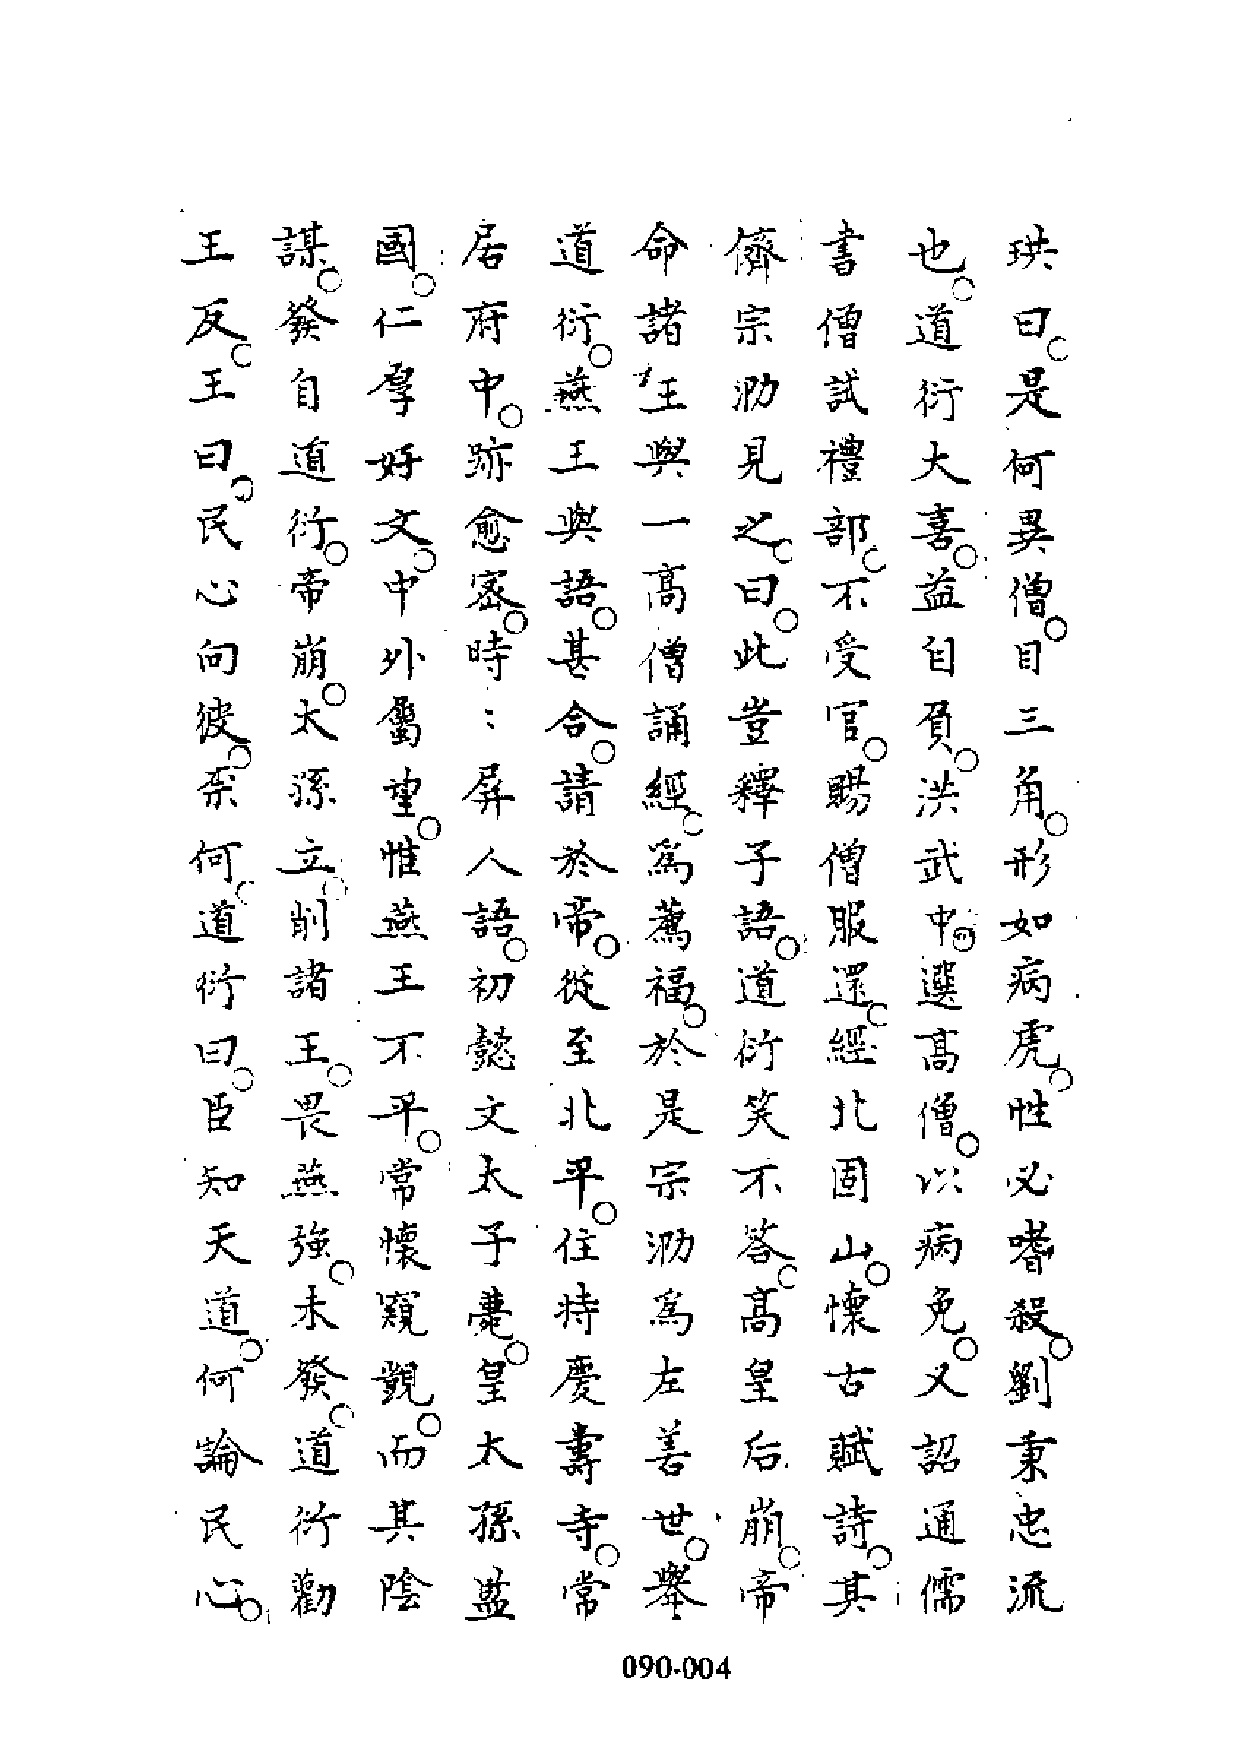 珙曰。是何異僧。目三角。形如病虎。性必嗜殺。劉秉忠流
也。道衍大喜。益自負。洪武中。選高僧。以病免。又詔通儒
書僧試禮部。不受官。賜僧服還。經北固山。懷古賦詩。其
儕宗泐見之。曰。此豈釋子語。道衍笑不答。高皇后崩。帝
命諸王與一高僧誦經。爲薦福。於是宗泐爲左善世。舉
道衍。燕王與語。甚合。請於帝。從至北平。住持慶壽寺。常
居府中。跡愈密。時：屏人語。初懿文太子薨。皇太孫監
國。仁孝好文。中外屬望。惟燕王不平。常懷窺覬。而其陰
謀。發自道衍。帝崩。太孫立。削諸王。畏燕強。未發。道衍勸
王反。王曰。民心向彼。柰何。道衍曰。臣知天道。何論民心。
090-004